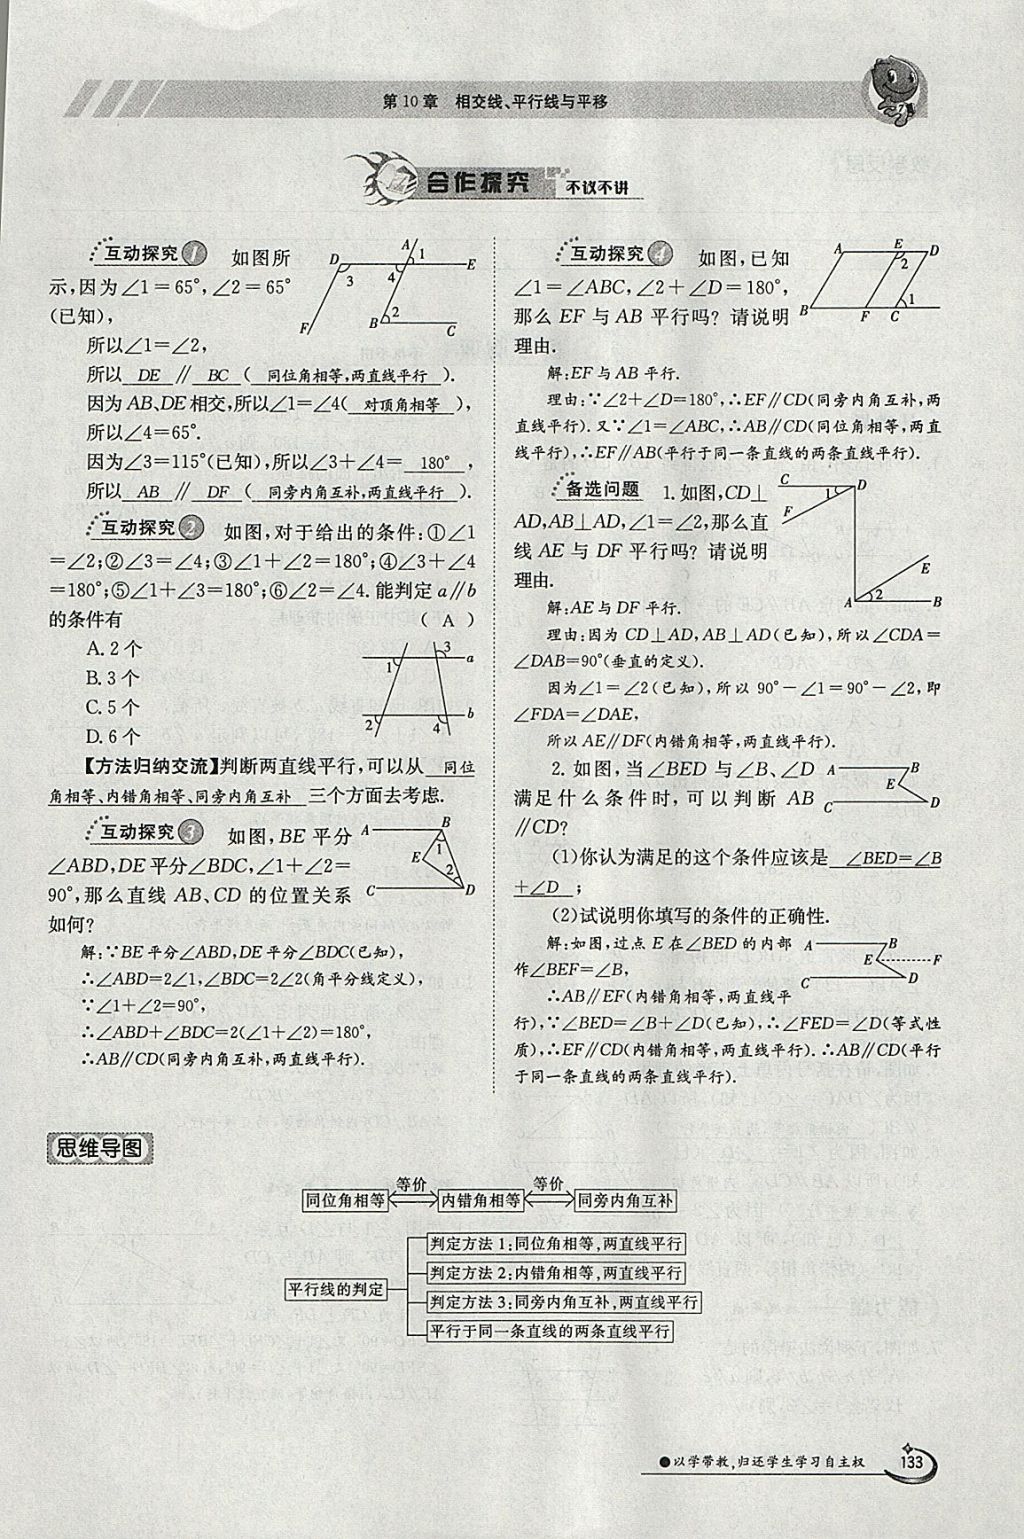 第10章 相交线、平行线与平移
合作探究 不议不讲
互动探究1 如图所
示,因为∠1=65°,∠2=65°
(已知),
所以∠1=∠2,
所以 DE ∥ BC ( 同位角相等,两直线平行 ).
因为AB、DE相交,所以∠1=∠4( 对顶角相等 ),
所以∠4=65°.
因为∠3=115°(已知),所以∠3+∠4= 180° ,
所以 AB ∥ DF ( 同旁内角互补,两直线平行 ).
A
1
D
E
3
4
2
F
B
C
互动探究2 如图,对于给出的条件:①∠1
=∠2;②∠3=∠4;③∠1+∠2=180°;④∠3+∠4
=180°;⑤∠1+∠3=180°;⑥∠2=∠4.能判定a∥b
的条件有 ( A )
A.2个
B.3个
C.5个
D.6个
3
1
a
2
4
b
【方法归纳交流】判断两直线平行,可以从 同位
角相等、内错角相等、同旁内角互补 三个方面去考虑.
互动探究3 如图,BE平分
∠ABD,DE平分∠BDC,∠1+∠2=
90°,那么直线AB、CD的位置关系
如何?
A
B
1
E
2
C
D
解:∵BE平分∠ABD,DE平分∠BDC(已知),
∴∠ABD=2∠1,∠BDC=2∠2(角平分线定义),
∵∠1+∠2=90°,
∴∠ABD+∠BDC=2(∠1+∠2)=180°,
∴AB∥CD(同旁内角互补,两直线平行).
互动探究4 如图,已知
∠1=∠ABC,∠2+∠D=180°,
那么EF与AB平行吗?请说明
理由.
A
E
D
2
B
F
C
1
解:EF与AB平行.
理由:∵∠2+∠D=180°,∴EF∥CD(同旁内角互补,两
直线平行).又∵∠1=∠ABC,∴AB∥CD(同位角相等,两直
线平行),∴EF∥AB(平行于同一条直线的两条直线平行).
备选问题 1.如图,CD⊥
AD,AB⊥AD,∠1=∠2,那么直
线AE与DF平行吗?请说明
理由.
C
D
1
F
E
2
A
B
解:AE与DF平行.
理由:因为CD⊥AD,AB⊥AD(已知),所以∠CDA=
∠DAB=90°(垂直的定义).
因为∠1=∠2(已知),所以90°-∠1=90°-∠2,即
∠FDA=∠DAE,
所以AE∥DF(内错角相等,两直线平行).
2.如图,当∠BED与∠B、∠D
满足什么条件时,可以判断AB
∥CD?
A
B
E
C
D
(1)你认为满足的这个条件应该是 ∠BED=∠B
+∠D ;
(2)试说明你填写的条件的正确性.
解:如图,过点E在∠BED的内部
作∠BEF=∠B,
∴AB∥EF(内错角相等,两直线平
行),∵∠BED=∠B+∠D(已知),∴∠FED=∠D(等式性
质),∴EF∥CD(内错角相等,两直线平行).∴AB∥CD(平行
于同一条直线的两条直线平行).
A
B
E
F
C
D
思维导图
同位角相等 等价 内错角相等 等价 同旁内角互补
平行线的判定
判定方法1:同位角相等,两直线平行
判定方法2:内错角相等,两直线平行
判定方法3:同旁内角互补,两直线平行
平行于同一条直线的两条直线平行
●以学带教,归还学生学习自主权 133